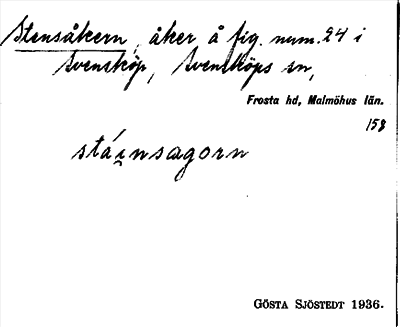 Stensåkern, åker å fig. num. 24 i
Svensköp, Svensköps sn,
Frosta hd, Malmöhus län.
158
stái̯nsagorn
GÖSTA SJÖSTEDT 1936.